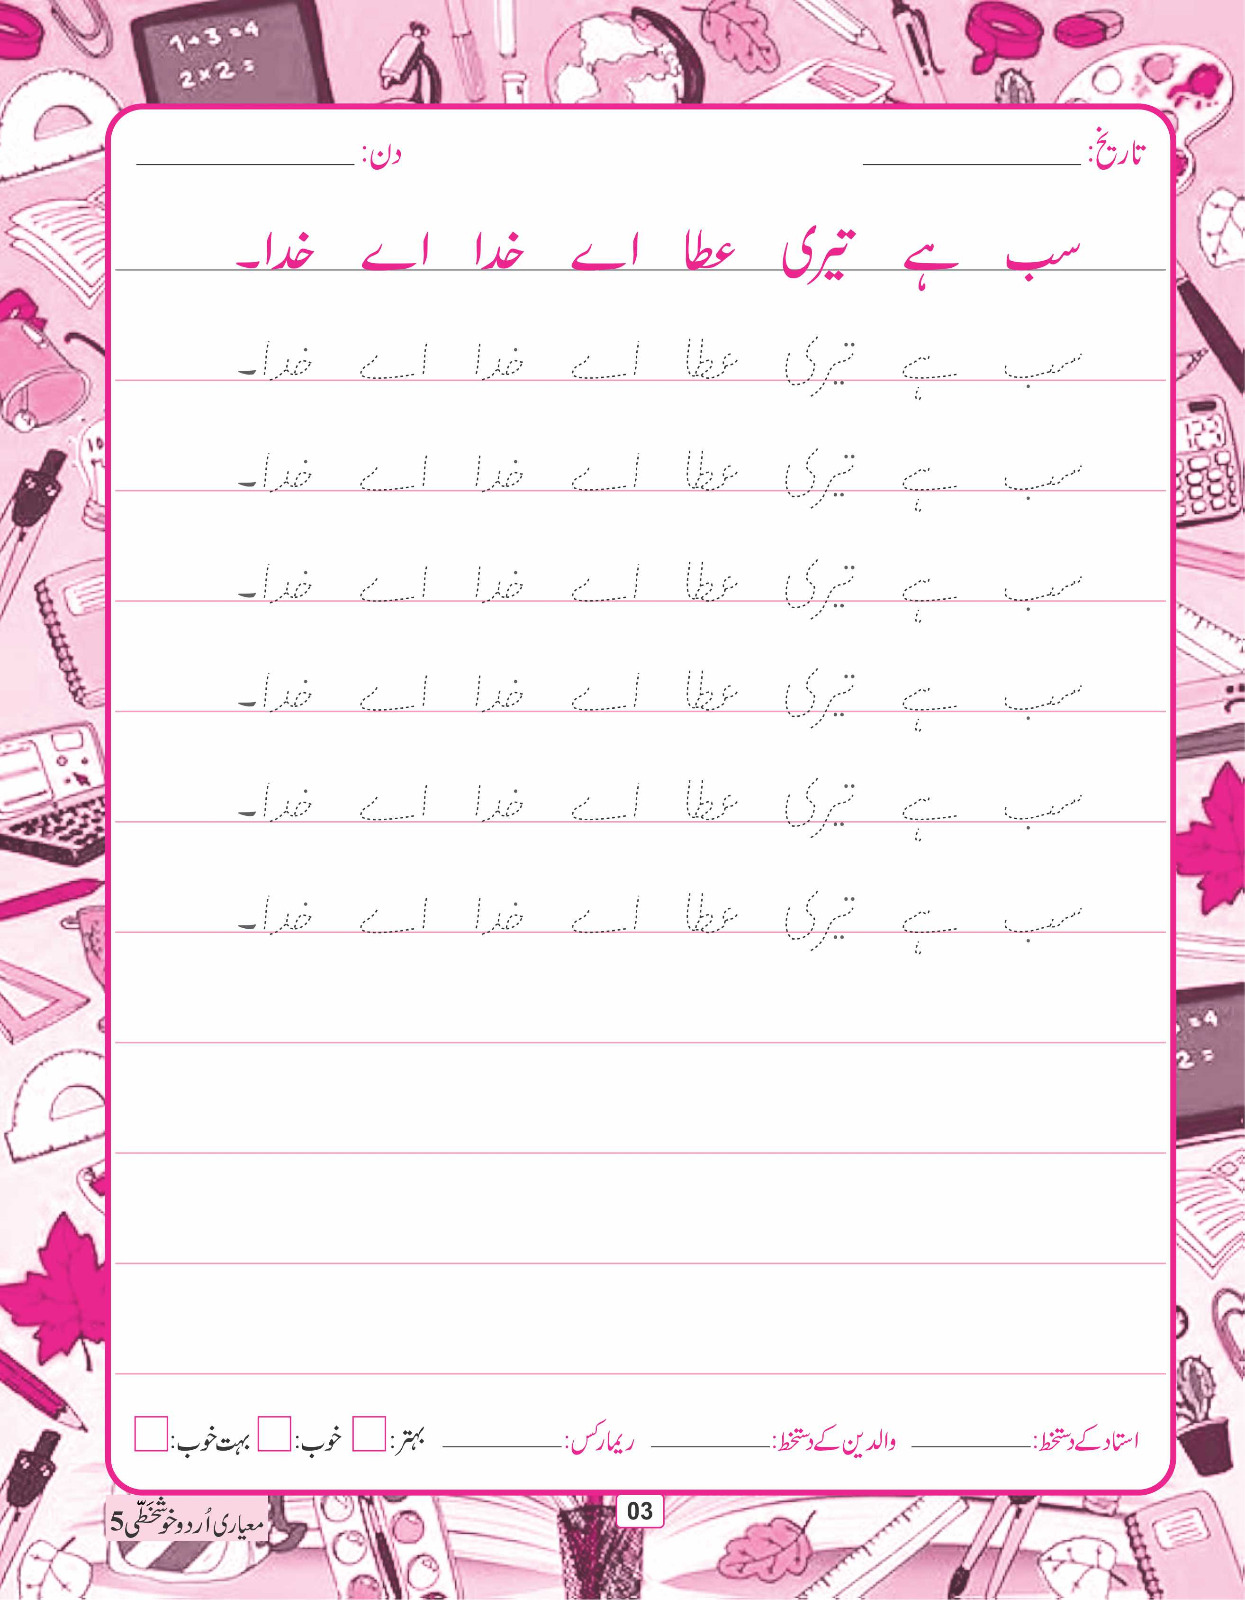 1+3=4
2×2=
تاریخ: دن:
سب ہے تیری عطا اے خدا اے خدا۔
سب ہے تیری عطا اے خدا اے خدا۔
سب ہے تیری عطا اے خدا اے خدا۔
سب ہے تیری عطا اے خدا اے خدا۔
سب ہے تیری عطا اے خدا اے خدا۔
سب ہے تیری عطا اے خدا اے خدا۔
سب ہے تیری عطا اے خدا اے خدا۔
استاد کے دستخط: والدین کے دستخط: ریمارکس: بہتر: خوب: بہت خوب:
03
معیاری اُردو خوشخطّی 5